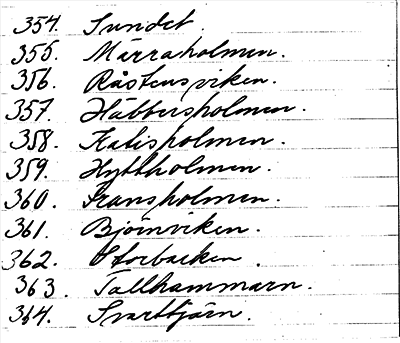 354. Sundet
355. Märraholmen.
356. Råstensviken.
357. Häbbersholmen.
358. Kalisholmen.
359. Hyttholmen.
360. Fransholmen.
361. Björnviken.
362. Storbacken.
363. Tallhammarn.
364. Svarttjärn.